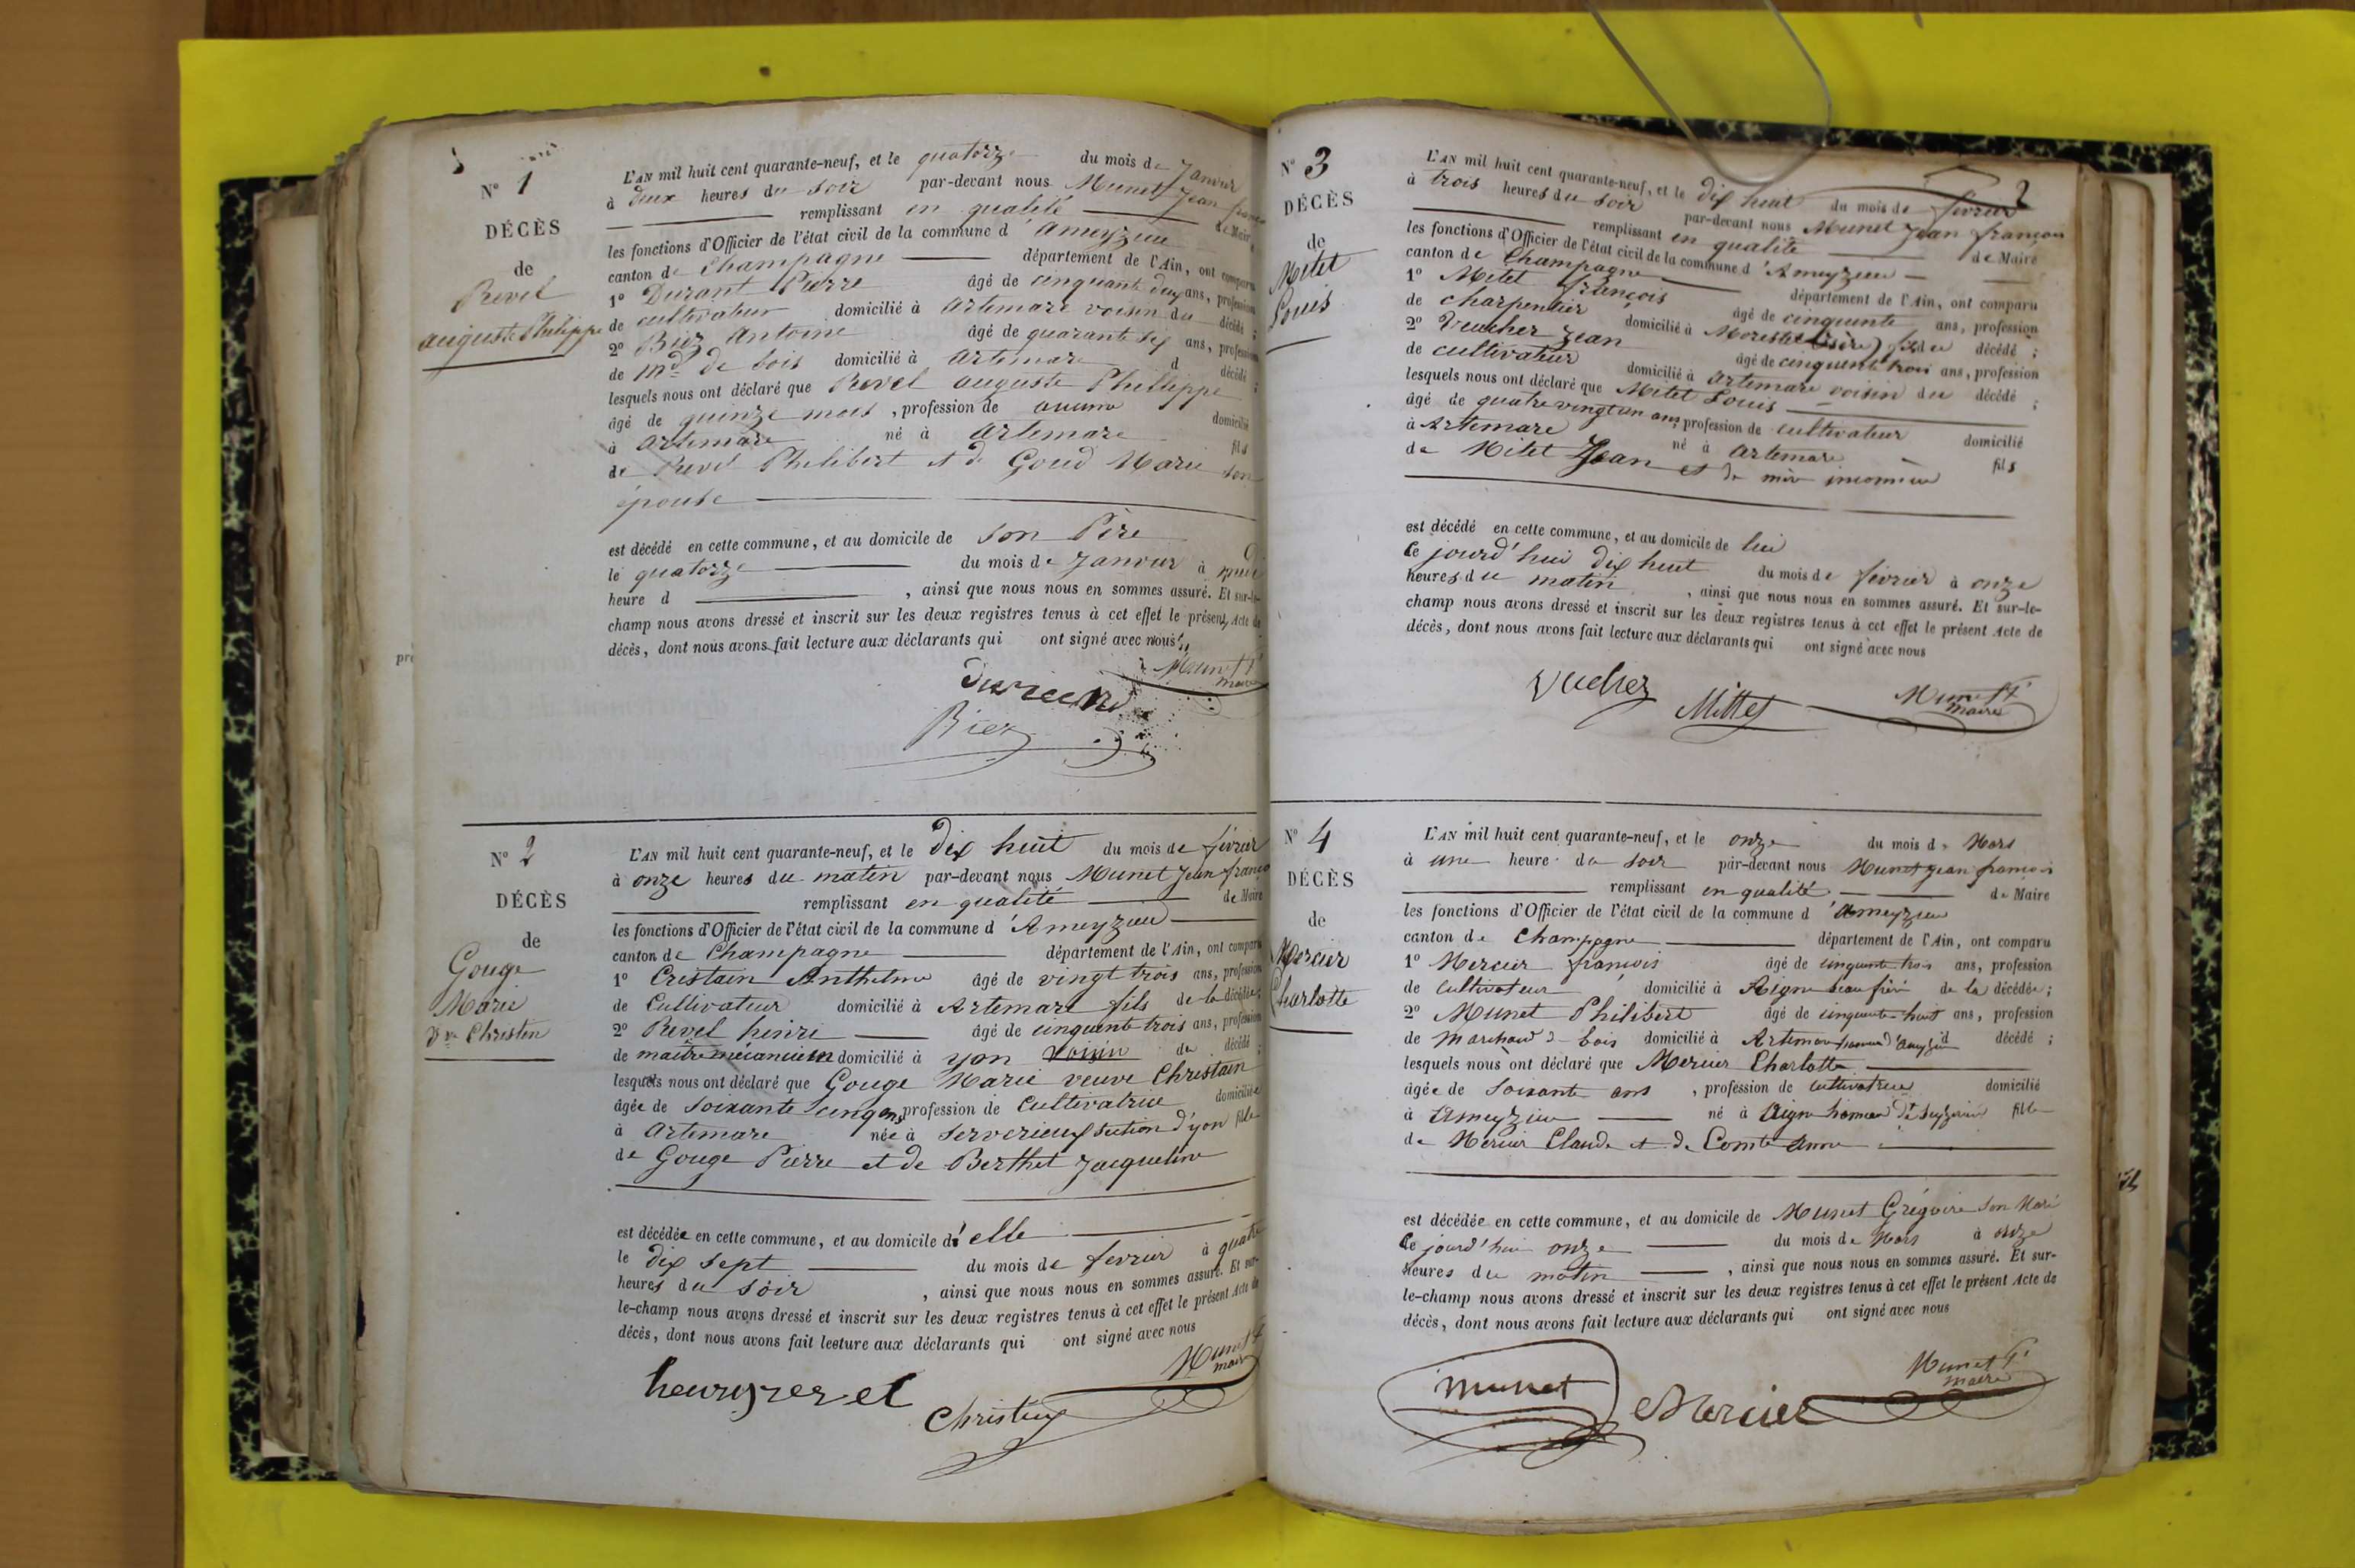 N° 1
DÉCÈS
de
Revel
auguste Philippe
L'AN mil huit cent quarante-neuf, et le quatorze du mois de Janvier
à deux heures du soir par-devant nous Munet Jean franco
remplissant en qualité de Maire
les fonctions d'Officier de l'état civil de la commune d'ameyzieu
canton de Champagne département de l'Ain, ont comparu
1° Durant Pierre âgé de cinquante deux ans, profession
de cultivateur domicilié à Artemare voisin du décédé ;
2° Biez Antoine âgé de quarante six ans, profession
de md de bois domicilié à Artemare d décédé ;
lesquels nous ont déclaré que Revel auguste Philippe
âgé de quinze mois , profession de aucune domicilié
à Artemare né à Artemare fils
de Revel Philibert et de Goud Marie son
épouse
est décédé en cette commune, et au domicile de son Père
le quatorze du mois de Janvier à midi
heure d , ainsi que nous nous en sommes assuré. Et sur-le-
champ nous avons dressé et inscrit sur les deux registres tenus à cet effet le présent Acte de
décès, dont nous avons fait lecture aux déclarants qui ont signé avec nous
Munet f
maire
Durand
Biez
N° 2
DÉCÈS
de
Gouge
Marie
Vve Christin
L'AN mil huit cent quarante-neuf, et le dix huit du mois de février
à onze heures du matin par-devant nous Munet Jean franço
remplissant en qualité de Maire
les fonctions d'Officier de l'état civil de la commune d'Ameyzieu
canton de Champagne département de l'Ain, ont comparu
1° Cristain Anthelme âgé de vingt trois ans, profession
de Cultivateur domicilié à Artemare fils de la décédée ;
2° Revel henri âgé de cinquante trois ans, profession
de maître mécanicien domicilié à yon voisin de décédé ;
lesquels nous ont déclaré que Gouge Marie veuve Christain
âgée de soixante cinq ans profession de Cultivatrice domiciliée
à Artemare née à serverieux section d'yon fille
de Gouge Pierre et de Berthet Jacqueline
est décédée en cette commune, et au domicile d'elle
le dix sept du mois de fevrier à quatre
heures du soir , ainsi que nous nous en sommes assuré. Et sur-
le-champ nous avons dressé et inscrit sur les deux registres tenus à cet effet le présent Acte de
décès, dont nous avons fait lecture aux déclarants qui ont signé avec nous
Munet f
maire
henry revel
Christin
N° 3
DÉCÈS
de
Mitet
Louis
2
L'AN mil huit cent quarante-neuf, et le dix huit du mois de février
à trois heures du soir par-devant nous Munet Jean françois
remplissant en qualité de Maire
les fonctions d'Officier de l'état civil de la commune d'Ameyzieu
canton de Champagne département de l'Ain, ont comparu
1° Mitet françois âgé de cinquante ans, profession
de charpentier domicilié à Morestel (isère) fils du décédé ;
2° Veucher Jean âgé de cinquante trois ans, profession
de cultivateur domicilié à Artemare voisin du décédé ;
lesquels nous ont déclaré que Mitet Louis
âgé de quatre vingt un ans profession de cultivateur domicilié
à Artemare né à Artemare fils
de Mitet Jean et de mère inconnue
est décédé en cette commune, et au domicile de lui
Ce jourd'hui dix huit du mois de février à onze
heures du matin , ainsi que nous nous en sommes assuré. Et sur-le-
champ nous avons dressé et inscrit sur les deux registres tenus à cet effet le présent Acte de
décès, dont nous avons fait lecture aux déclarants qui ont signé avec nous
Vucher Mittet Munet f
maire
N° 4
DÉCÈS
de
Mercier
Charlotte
L'AN mil huit cent quarante-neuf, et le onze du mois de Mars
à une heure du soir par-devant nous Munet jean françois
remplissant en qualité de Maire
les fonctions d'Officier de l'état civil de la commune d'ameyzieu
canton de Champagne département de l'Ain, ont comparu
1° Mercier françois âgé de cinquante trois ans, profession
de Cultivateur domicilié à Aigne beau frère de la décédée ;
2° Munet Philibert âgé de cinquante huit ans, profession
de Marchand d bois domicilié à Artemare d décédé ;
lesquels nous ont déclaré que Mercier Charlotte
âgée de soixante ans , profession de cultivatrice domicilié
à Ameyzieu né à Aigne fille
de Mercier Claude et de Comte Anne
est décédée en cette commune, et au domicile de Munet Grégoire son Mari
Ce jourd'hui onze du mois de Mars à onze
heures du matin , ainsi que nous nous en sommes assuré. Et sur-
le-champ nous avons dressé et inscrit sur les deux registres tenus à cet effet le présent Acte de
décès, dont nous avons fait lecture aux déclarants qui ont signé avec nous
Munet f
maire
munet Mercier